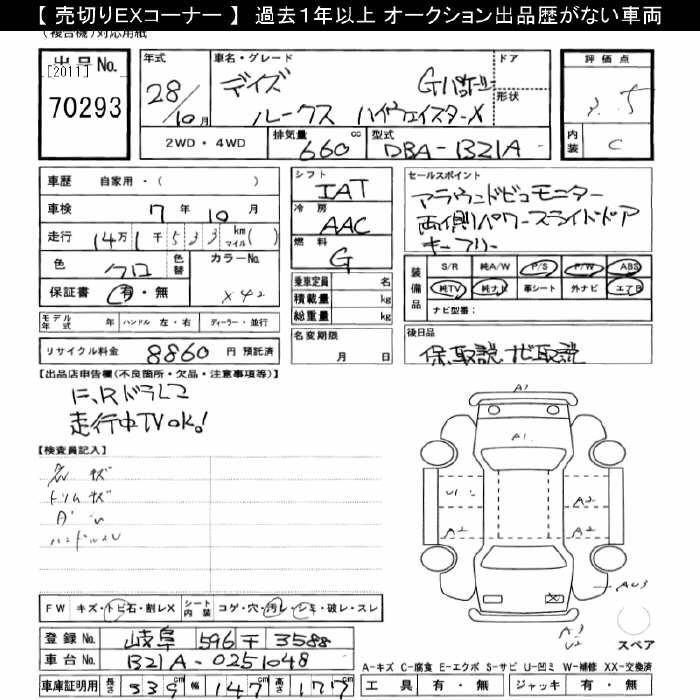 【 売切りEXコーナー 】 過去1年以上 オークション出品歴がない車両
(複合機)対応用紙
出品No.
[2011]
70293
年式
28/10月
車名・グレード
デイズ
ルークス ハイウェイスターX
Gパッケージ
ドア
形状
2WD・4WD
排気量 660 cc
型式 DBA-B21A
評価点
3.5
内装 C
車歴 自家用・( )
車検 7年10月
走行 14万1千533 km マイル( )
色 クロ
色替
カラーNo. X42
保証書 有・無
モデル年式 年 ハンドル 左・右 ディーラー・並行
リサイクル料金 8860 円 預託済
シフト
IAT
冷房
AAC
燃料
G
乗車定員 名
積載量 kg
総重量 kg
名変期限
月 日
セールスポイント
アラウンドビュモニター
両側パワースライドドア
キーフリー
装備品
S/R 純A/W P/S P/W ABS
純TV 純ナビ 革シート 外ナビ エアB
ナビ型番:
後日品
保、取説、ナビ取説
【出品店申告欄(不良箇所・欠品・注意事項等)】
F、Rドラレコ
走行中TVOK!
【検査員記入】
キズ
トリムキズ
ハンドルスレ
FW キズ・トビ石・割レX
シート内装 コゲ・穴・汚レ・シミ・破レ・スレ
登録No. 岐阜 596 〒 3588
車台No. B21A-0251048
車庫証明用 長さ 339cm 幅 147cm 高さ 177cm
A1
A1
U1
A2
A2
A2
AU3
X
A3
U2
スペア
A-キズ C-腐食 E-エクボ S-サビ U-凹ミ W-補修 XX-交換済
工具 有・無 ジャッキ 有・無